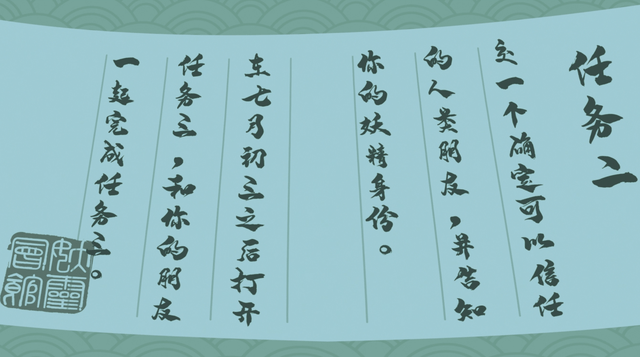 任务二
交一个确定可以信任
的人类朋友，并告知
你的妖精身份。
在七月初三之后打开
任务三，和你的朋友
一起完成任务三。
妖靈
會館